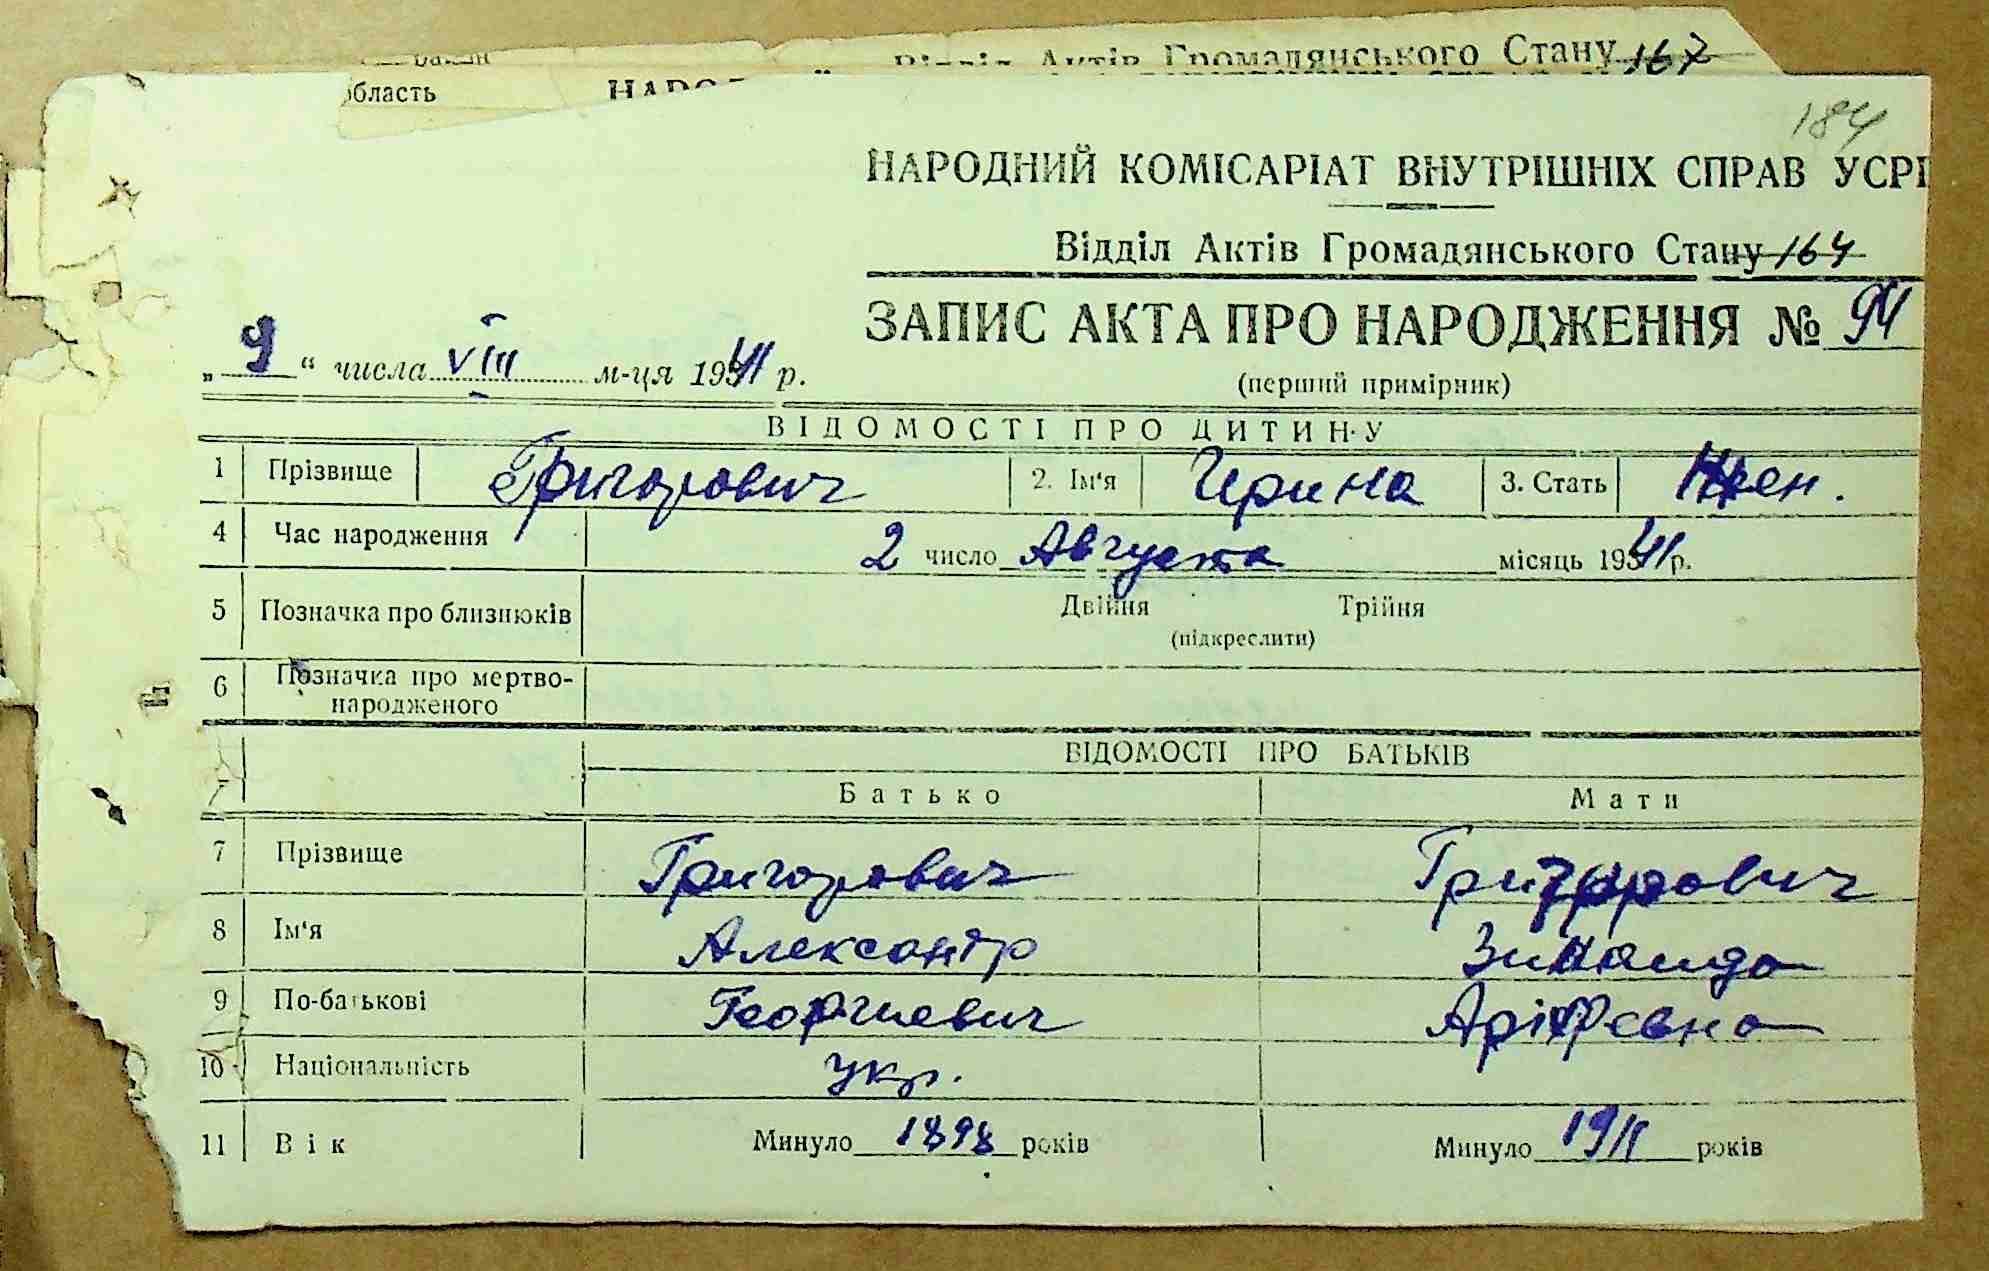 Відділ Актів Громадянського Стану 167
область
184
НАРОДНИЙ КОМІСАРІАТ ВНУТРІШНІХ СПРАВ УСРР
Відділ Актів Громадянського Стану 164
ЗАПИС АКТА ПРО НАРОДЖЕННЯ № 94
„ 9 “ числа VIII м-ця 1941 р.
(перший примірник)
ВІДОМОСТІ ПРО ДИТИНУ
1 Прізвище Григорович 2. Ім'я Ирина 3. Стать Жен.
4 Час народження 2 число Августа місяць 1941 р.
5 Позначка про близнюків Двійня Трійня
(підкреслити)
6 Позначка про мертво-
народженого
ВІДОМОСТІ ПРО БАТЬКІВ
Батько Мати
7 Прізвище Григорович Григорович
8 Ім'я Александр Зинаида
9 По-батькові Георгиевич
10 Національність укр.
11 Вік Минуло 1898 років Минуло 1911 років